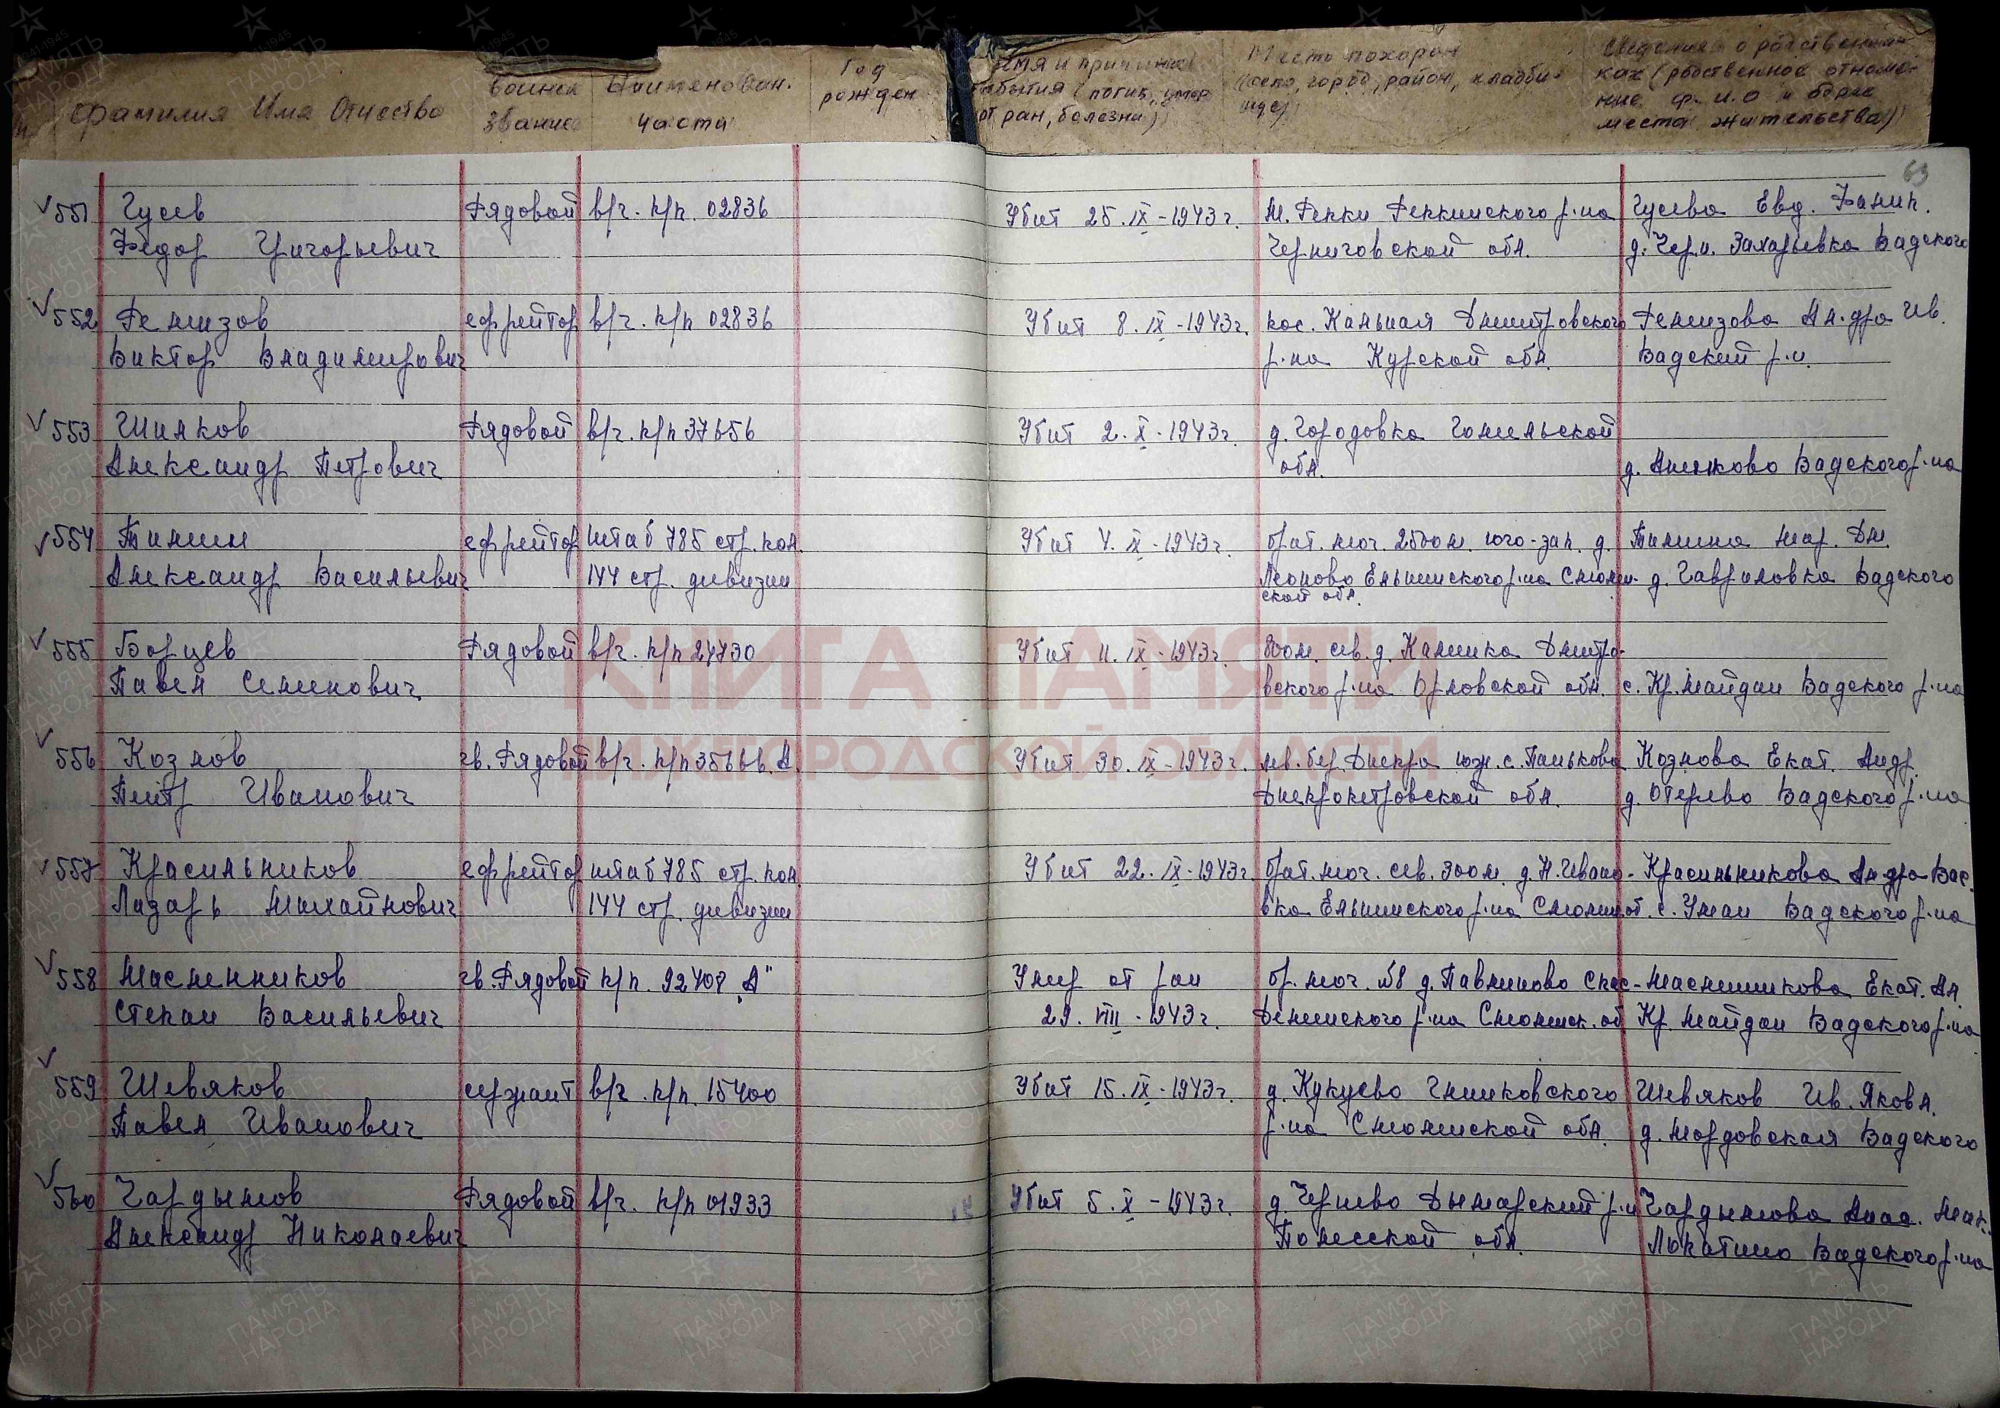 Фамилия Имя Отчество
Воинск звание
Наименован. части
Год рожден
Время и причина выбытия (погиб, умер от ран, болезни)
Место похорон (село, город, район, кладбище)
Сведения о родственниках (родственное отноме-ние ф. и. о и адрес места жительства)
63
551 Гусев Рядовой в/ч. п/п. 02836 Убит 25. IX - 1943г. м. Репки Репкинского р-на Гусева Евд. Филип.
Федор Григорьевич Черниговской обл. д. Черн. Захарьевка Вадского
552 Ремизов ефрейтор в/ч. п/п 02836 Убит 8. IX - 1943г. пос. Дмитровского Ремизова Ал-дра Ив.
Виктор Владимирович р-на Курской обл. Вадский р-н
553 Шилков Рядовой в/ч. п/п 37656 Убит 2. X - 1943г. д. Городовка Гомельской
Александр Петрович обл. д. Вадского р-на
554 Тимин ефрейтор штаб 785 стр. пол. Убит 4. IX - 1943г. брат. мог. 2500 м. юго-зап. д. Тимина Мар. Дм.
Александр Васильевич 144 стр. дивизии Леоново Ельнинского р-на Смолен- д. Гавриловка Вадского
ской обл.
555 Борцев Рядовой в/ч. п/п 24730 Убит 11. IX - 1943г. 800м. сев. д. Калинка Дмитро-
Павел Семенович вского р-на Орловской обл. с. Кр. Майдан Вадского р-на
556 Козлов гв. Рядовой в/ч. п/п 35666 А Убит 30. IX - 1943г. лев. бер. Днепра юж. с. Паньково Козлова Екат. Андр.
Петр Иванович Днепропетровской обл. д. Отерево Вадского р-на
557 Красильников ефрейтор штаб 785 стр. пол. Убит 22. IX - 1943г брат. мог. сев. 300м. д. Н. Ивано- Красильникова Ал-дра Вас.
Лазарь Михайлович 144 стр. дивизии вка Ельнинского р-на Смолен. об. с. Умай Вадского р-на
558 Масленников гв. Рядовой п/п. 92408 „А" Умер от ран бр. мог. №8 д. Павлиново Спас- Масленникова Екат. Ал.
Степан Васильевич 29. VIII - 1943г. Деменского р-на Смоленск. об Кр. Майдан Вадского р-на
559 Шевяков сержант в/ч. п/п. 15400 Убит 15. IX - 1943г. д. Кукуево Глинковского Шевяков Ив. Яковл.
Павел Иванович р-на Смоленской обл. д. Мордовская Вадского
560 Чардымов Рядовой в/ч. п/п 01933 Убит 5. X - 1943г. д. Чернево Дымарский р-н Чардымова Анас. Мак.
Александр Николаевич Полесской обл. Лопатино Вадского р-на
КНИГА ПАМЯТИ
НИЖГОРОДСКОЙ ОБЛАСТИ